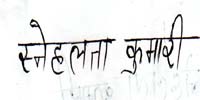 स्नेहलता कुमारी